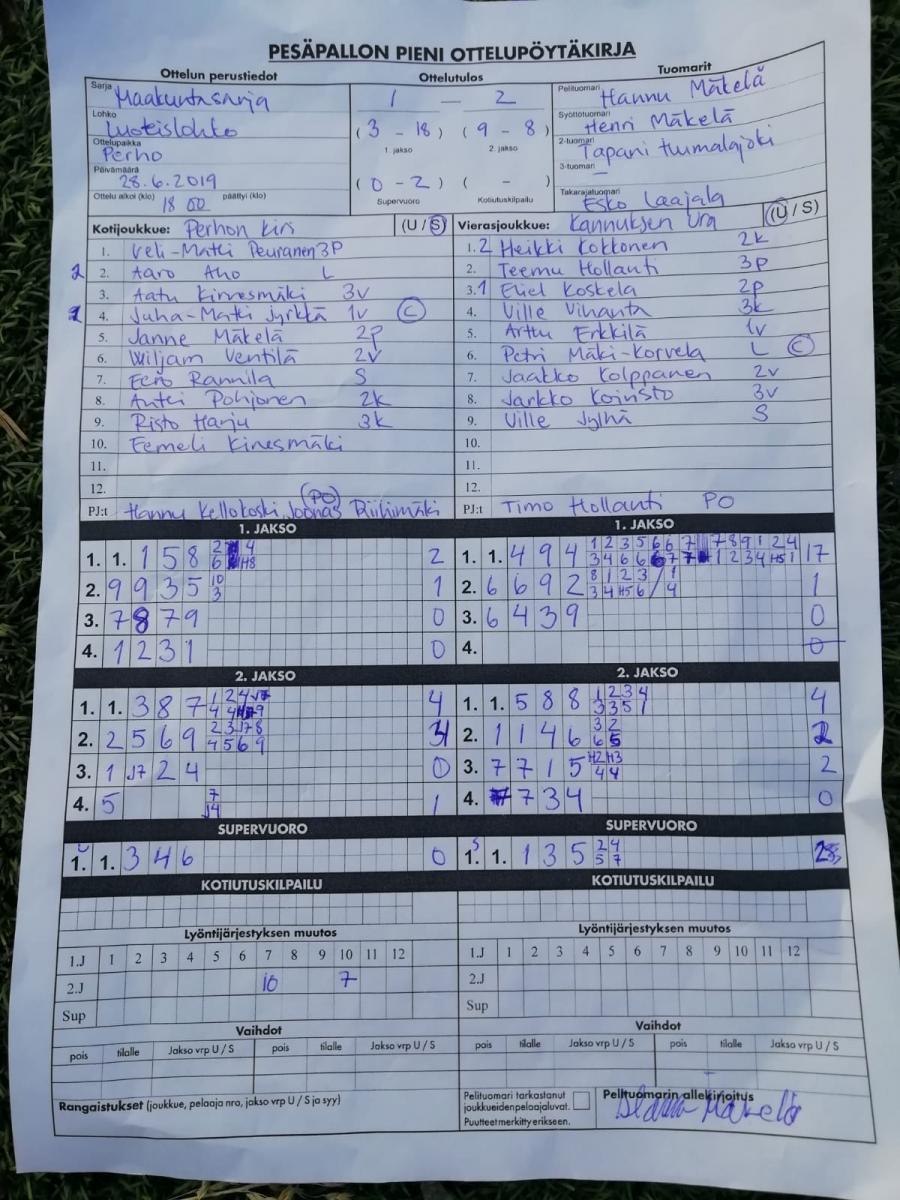 PESÄPALLON PIENI OTTELUPÖYTÄKIRJA
Ottelun perustiedot Ottelutulos Tuomarit
Sarja Maakuntasarja 1 – 2 Pelituomari Hannu Mäkelä
Lohko Luoteislohko (3 - 18) (9 - 8) Syöttötuomari Henri Mäkelä
Ottelupaikka Perho 1. jakso 2. jakso 2-tuomari Tapani Humalajoki
Päivämäärä 28.6.2019 (0 - 2) ( - ) 3-tuomari –
Ottelu alkoi (klo) 18 00 päättyi (klo) Supervuoro Kotiutuskilpailu Takarajatuomari Esko Laajala
Kotijoukkue: Perhon Kiri (U / S) Vierasjoukkue: Kannuksen Ura (U / S)
1. Veli-Matti Peuranen 3P 1. 2 Heikki Kokkonen 2k
2 2. Aaro Aho L 2. Teemu Hollanti 3p
3. Aatu Kinnesmäki 3v 3. 1 Eliel Koskela 2p
4. Juha-Matti Jyrkkä 1v C 4. Ville Vihanta 3k
5. Janne Mäkelä 2p 5. Arttu Erkkilä 1v
6. Wiljam Ventilä 2v 6. Petri Mäki-Korvela L C
7. Eero Rannila S 7. Jaakko Kolppanen 2v
8. Antti Pohjonen 2k 8. Jarkko Koivisto 3v
9. Risto Harju 3k 9. Ville Jylhä S
10. Eemeli Kinnesmäki 10.
11. 11.
12. 12.
PJ:t Hannu Kellokoski, Joonas Riihimäki (PO) PJ:t Timo Hollanti PO
1. JAKSO 1. JAKSO
1. 1. 1 5 8 2 1. 1. 4 9 4 17
2. 9 9 3 5 10 3 1 2. 6 6 9 2 1
3. 7 8 7 9 0 3. 6 4 3 9 0
4. 1 2 3 1 0 4. 0
2. JAKSO 2. JAKSO
1. 1. 3 8 7 4 1. 1. 5 8 8 1 2 3 4 4
2. 2 5 6 9 4 5 6 9 2. 1 1 4 6 3 2 6 5 2
3. 1 J7 2 4 0 3. 7 7 1 5 H2 H3 4 4 2
4. 5 7 J4 1 4. 7 3 4 0
SUPERVUORO SUPERVUORO
1. 1. 3 4 6 0 1. 1. 1 3 5 2 4 5 7 2
KOTIUTUSKILPAILU KOTIUTUSKILPAILU
Lyöntijärjestyksen muutos Lyöntijärjestyksen muutos
1.J 1 2 3 4 5 6 7 8 9 10 11 12 1.J 1 2 3 4 5 6 7 8 9 10 11 12
2.J 10 7 2.J
Sup Sup
Vaihdot Vaihdot
pois tilalle Jakso vrp U / S pois tilalle Jakso vrp U / S pois tilalle Jakso vrp U / S pois tilalle Jakso vrp U / S
Rangaistukset (joukkue, pelaaja nro, jakso vrp U / S ja syy) Pelituomari tarkastanut joukkueidenpelaajaluvat. Puutteet merkitty erikseen. Pelituomarin allekirjoitus
Hannu Mäkelä